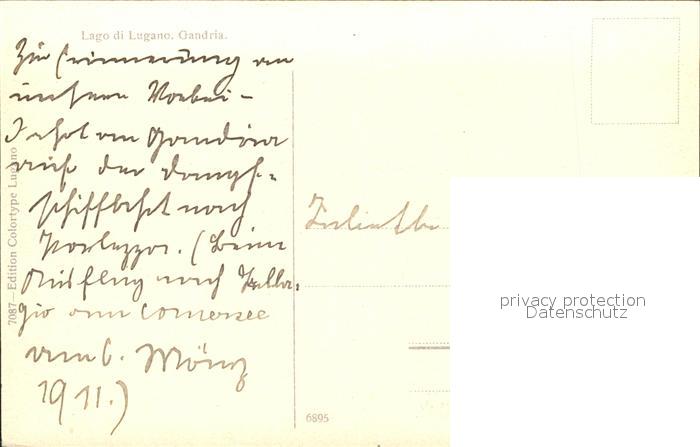 Lago di Lugano. Gandria.
Zur Erinnerung an
unsere Vorbei-
fahrt an Gandria
auf der Dampf-
schiffahrt nach
Porlezza. (Beim
Ausflug nach Bella-
gio am Comersee
am 6. März
1911.)
7087 – Edition Colortype Lugano
6895
privacy protection
Datenschutz